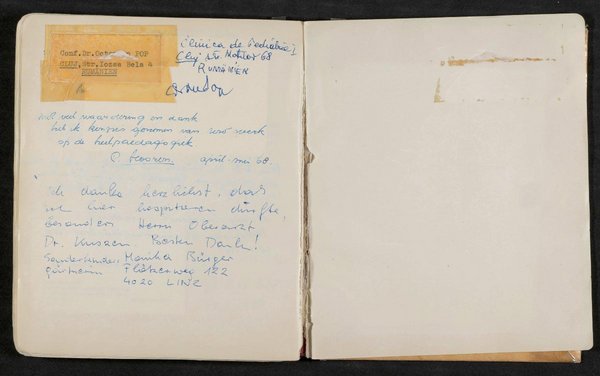 Conf.Dr. Octavian POP
CLUJ, Str. Iozsa Bela 4
RUMÄNIEN
Clinica de Pediatrie I
Cluj Str. Motilor 68
RUMÄNIEN
met veel waardering en dank
heb ik kennis genomen van uw werk
op de heilpaedagogiek
april-mei 68.
Ich danke herzlichst, daß
ich hier hospitieren durfte,
besonders Herrn Oberarzt
Dr. Kuszen. Besten Dank!
Sonderkinder- Monika Bürger
gärtnerin Flötzerweg 122
4020 LINZ